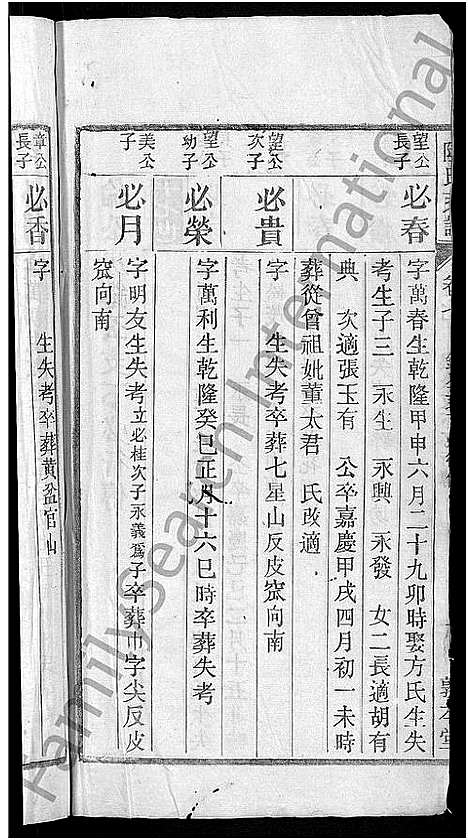 望公長子
必春
字萬春生乾隆甲申六月二十九卯時娶方氏生失
考生子三　永生　永興　永發　女二長適胡有
典　次適張玉有　公卒嘉慶甲戌四月初一未時
葬從曾祖妣董太君　氏改適
望公次子
必貴
字　　生失考卒葬七星山反皮窊向南
望公幼子
必榮
字萬利生乾隆癸巳正月十六巳時卒葬失考
美公子
必月
字明友生失考立必桂次子永義為子卒葬巾字尖反皮
窊向南
章公長子
必香
字　　生失考卒葬黃盆官山
FamilySearch International